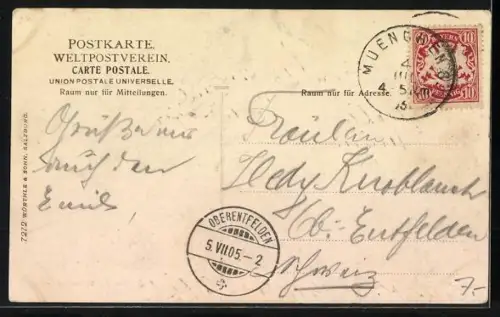 POSTKARTE.
WELTPOSTVEREIN.
CARTE POSTALE.
UNION POSTALE UNIVERSELLE.
Raum nur für Mitteilungen.
Raum nur für Adresse.
MUENCHEN
4
10
PFENNIG
Grüße
auch den
Emil
Fräulein
Hedy Knoblauch
Ob. Entfelden
Schweiz
OBERENTFELDEN
5.VII.05.-2
7272 WÜRTHLE & SOHN, SALZBURG.
7.-